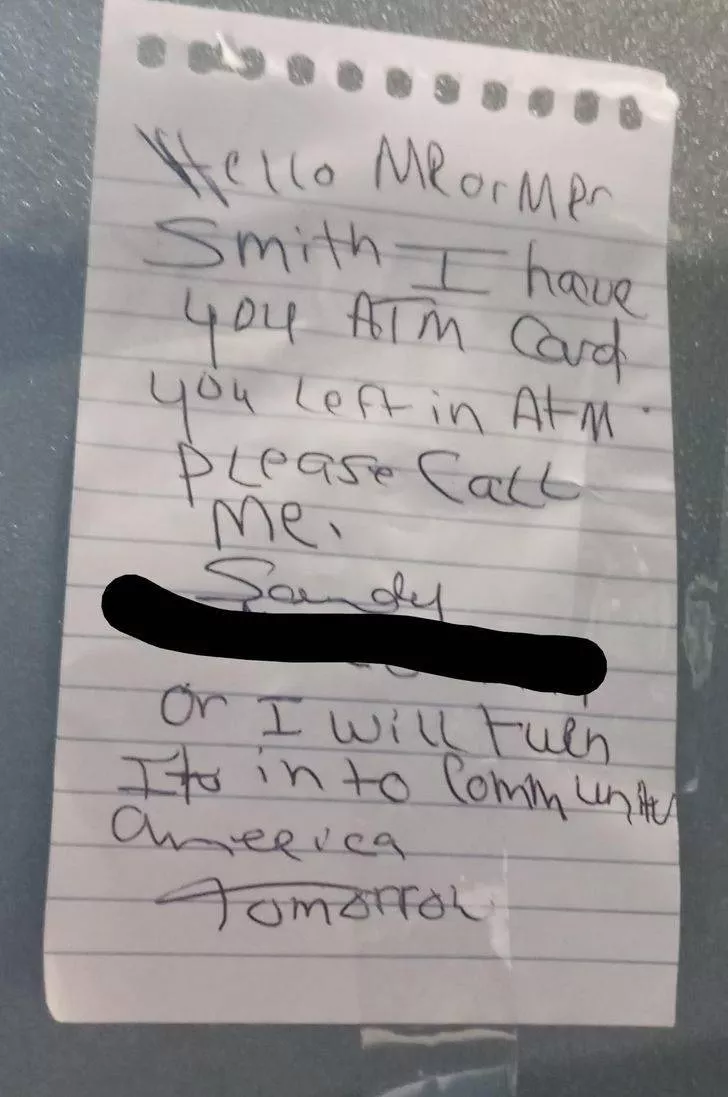 Hello MR or MRr
Smith I have
you ATM Card
you Left in AtM.
PLease Call
Me.
Sandy
or I will turn
Ito in to Community
America
Tomorrow